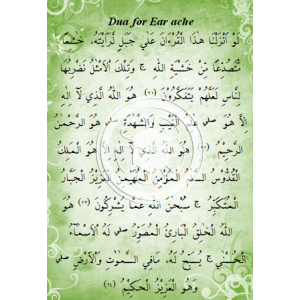 Dua for Ear ache
لَوْ أَنْزَلْنَا هٰذَا الْقُرْءَانَ عَلٰي جَبَلٍ لَّرَاَيْتَهُ، خَشِعًا
مُّتَصَدِّعًا مِّنْ خَشْيَةِ اللّٰهِ ج وَتِلْكَ الْاَمْثٰلُ نَضْرِبُهَا
لِلنَّاسِ لَعَلَّهُمْ يَتَفَكَّرُوْنَ (٢١) هُوَ اللّٰهُ الَّذِيْ لَآ اِلٰهَ
اِلاَّ هُوَ صلى عٰلِمُ الْغَيْبِ وَالشَّهٰدَةِ صلى هُوَ الرَّحْمٰنُ
الرَّحِيْمُ (٢٢) هُوَ اللّٰهُ الَّذِيْ لَآ اِلٰهَ اِلاَّ هُوَ الْمَلِكُ
الْقُدُّوْسُ السَّلٰمُ الْمُؤْمِنُ الْمُهَيْمِنُ الْعَزِيْزُ الْجَبَّارُ
الْمُتَكَبِّرُ ج سُبْحٰنَ اللّٰهِ عَمَّا يُشْرِكُوْنَ (٢٣) هُوَ
اللّٰهُ الْخٰلِقُ الْبَارِئُ الْمُصَوِّرُ صلى لَهُ الْاَسْمَآءُ
الْحُسْنٰي ج يُسَبِّحُ لَهُ، مَافِي السَّمٰوٰتِ وَالْاَرْضِ صلى
وَهُوَ الْعَزِيْزُ الْحَكِيْمُ (٢٤)